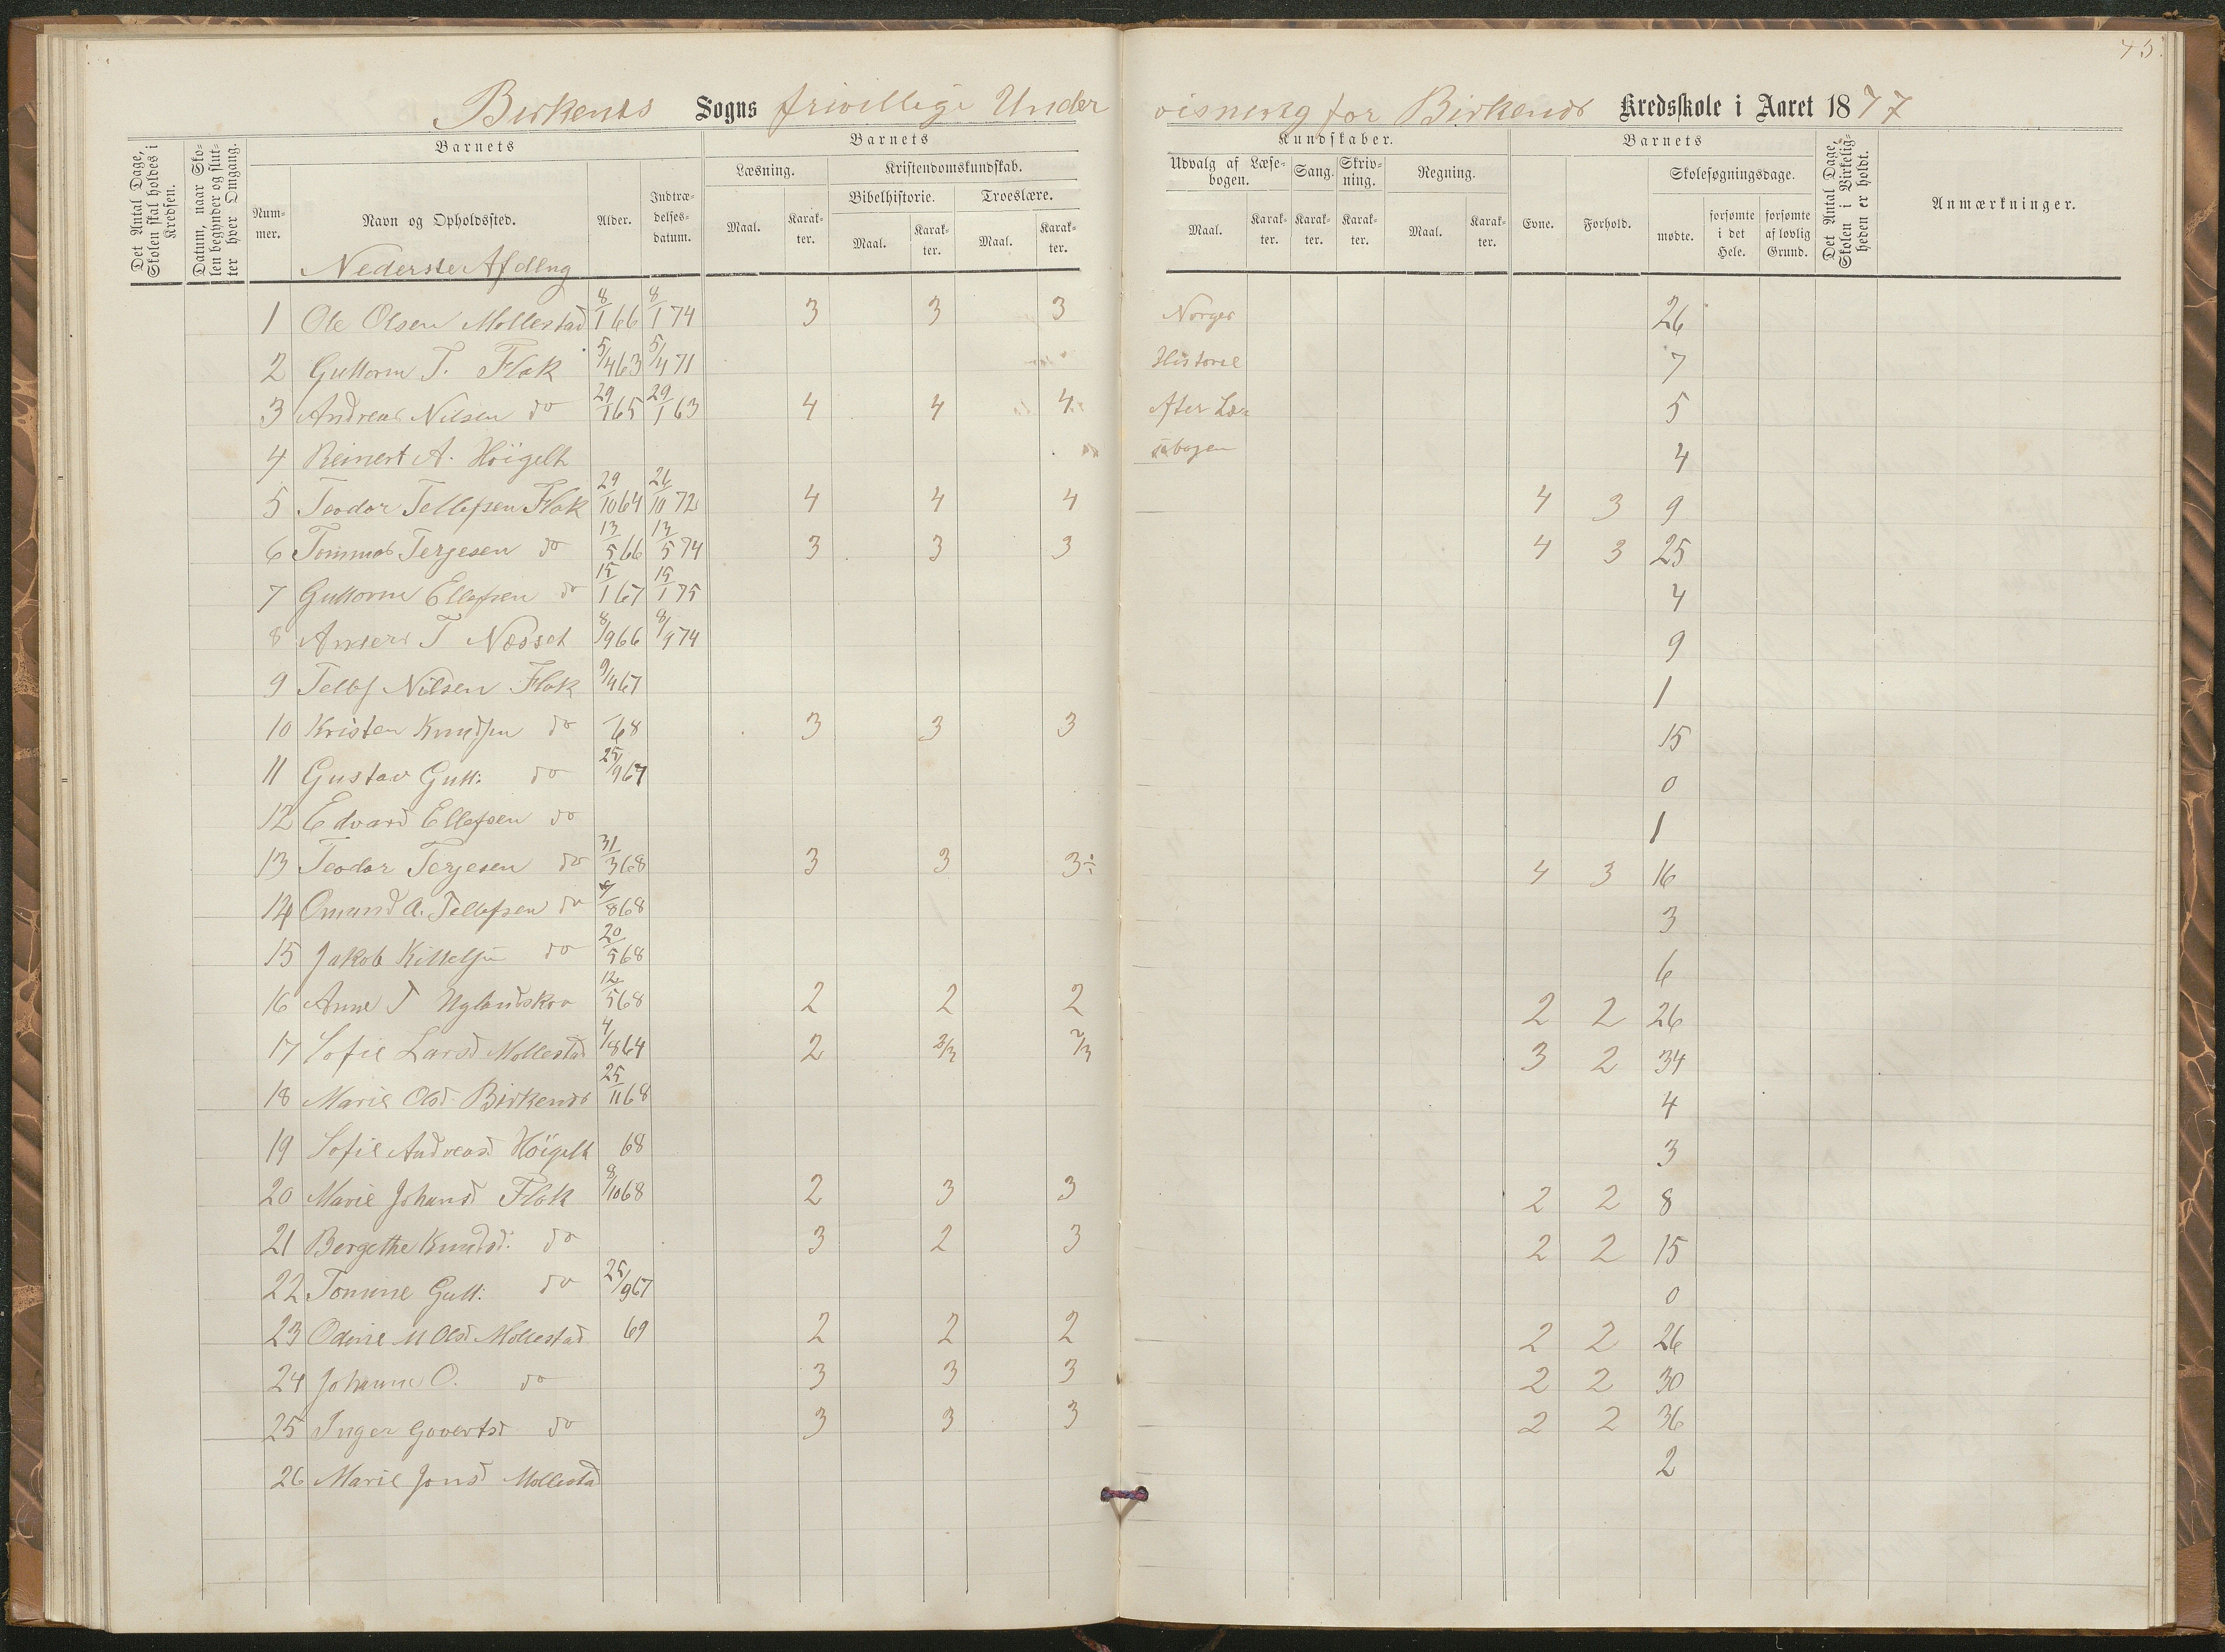 45.
Birkenes Sogns frivillige Under visning for Birkenes Kredsskole i Aaret 1877
Det Antal Dage, Skolen skal holdes i Kredsen.
Datum, naar Skolen begynder og slutter hver Omgang.
Barnets
Nummer.
Navn og Opholdssted.
Alder.
Indtrædelsesdatum.
Barnets
Læsning.
Maal.
Karakter.
Kristendomskundskab.
Bibelhistorie.
Maal.
Karakter.
Troeslære.
Maal.
Karakter.
Kundskaber.
Udvalg af Læsebogen.
Maal.
Karakter.
Sang.
Karakter.
Skrivning.
Karakter.
Regning.
Maal.
Karakter.
Barnets
Evne.
Forhold.
Skolesøgningsdage.
mødte.
forsømte i det Hele.
forsømte af lovlig Grund.
Det Antal Dage, Skolen i Virkeligheden er holdt.
Anmærkninger.
Nederste Afdlng
1 Ole Olsen Mollestad 8/1 66 8/1 74 3 3 3 Norges 26
2 Guttorm T. Flak 5/4 63 5/4 71 Historie 7
3 Andreas Nilsen do 29/1 65 29/1 63 4 4 4 After Læ= 5
4 Reinert A. Höigelt sebogen 4
5 Teodor Tellefsen Flak 29/10 64 26/10 72 4 4 4 4 3 9
6 Tommas Terjesen do 13/5 66 13/5 74 3 3 3 4 3 25
7 Guttorm Ellefsen do 15/1 67 15/1 75 4
8 Anders T Næsset 8/9 66 8/9 74 9
9 Tellef Nilsen Flak 9/4 67 1
10 Kristen Knudsen do 68 3 3 3 15
11 Gustav Gutt: do 25/9 67 0
12 Edvard Ellefsen do 1
13 Teodor Terjesen do 31/3 68 3 3 3÷ 4 3 16
14 Omund A. Tellefsen do /8 68 3
15 Jakob Kittelsen do 20/5 68 6
16 Anne T Uglandskaa 12/5 68 2 2 2 2 2 26
17 Sofie Larsd Mollestad 4/8 64 2 2/3 2/3 3 2 34
18 Marie Olsd. Birkenes 25/11 68 4
19 Sofie Andreasd Höigelt 68 3
20 Marie Johansd Flak 8/10 68 2 3 3 2 2 8
21 Bergethe Knudsd. do 3 2 3 2 2 15
22 Tomine Gutt: do 25/9 67 0
23 Odine M Olsd Mollestad 69 2 2 2 2 2 26
24 Johanne O. do 3 3 3 2 2 30
25 Inger Govertsd do 3 3 3 2 2 36
26 Marie Jonsd Mollestad 2